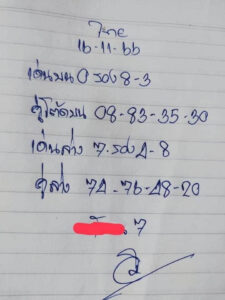 16-11-66
เด่นบน 0 รอง 8-3
คู่โต๊ดบน 08-83-35-30
เด่นล่าง 7-รอง 4-8
คู่ล่าง 74-76-48-20
7